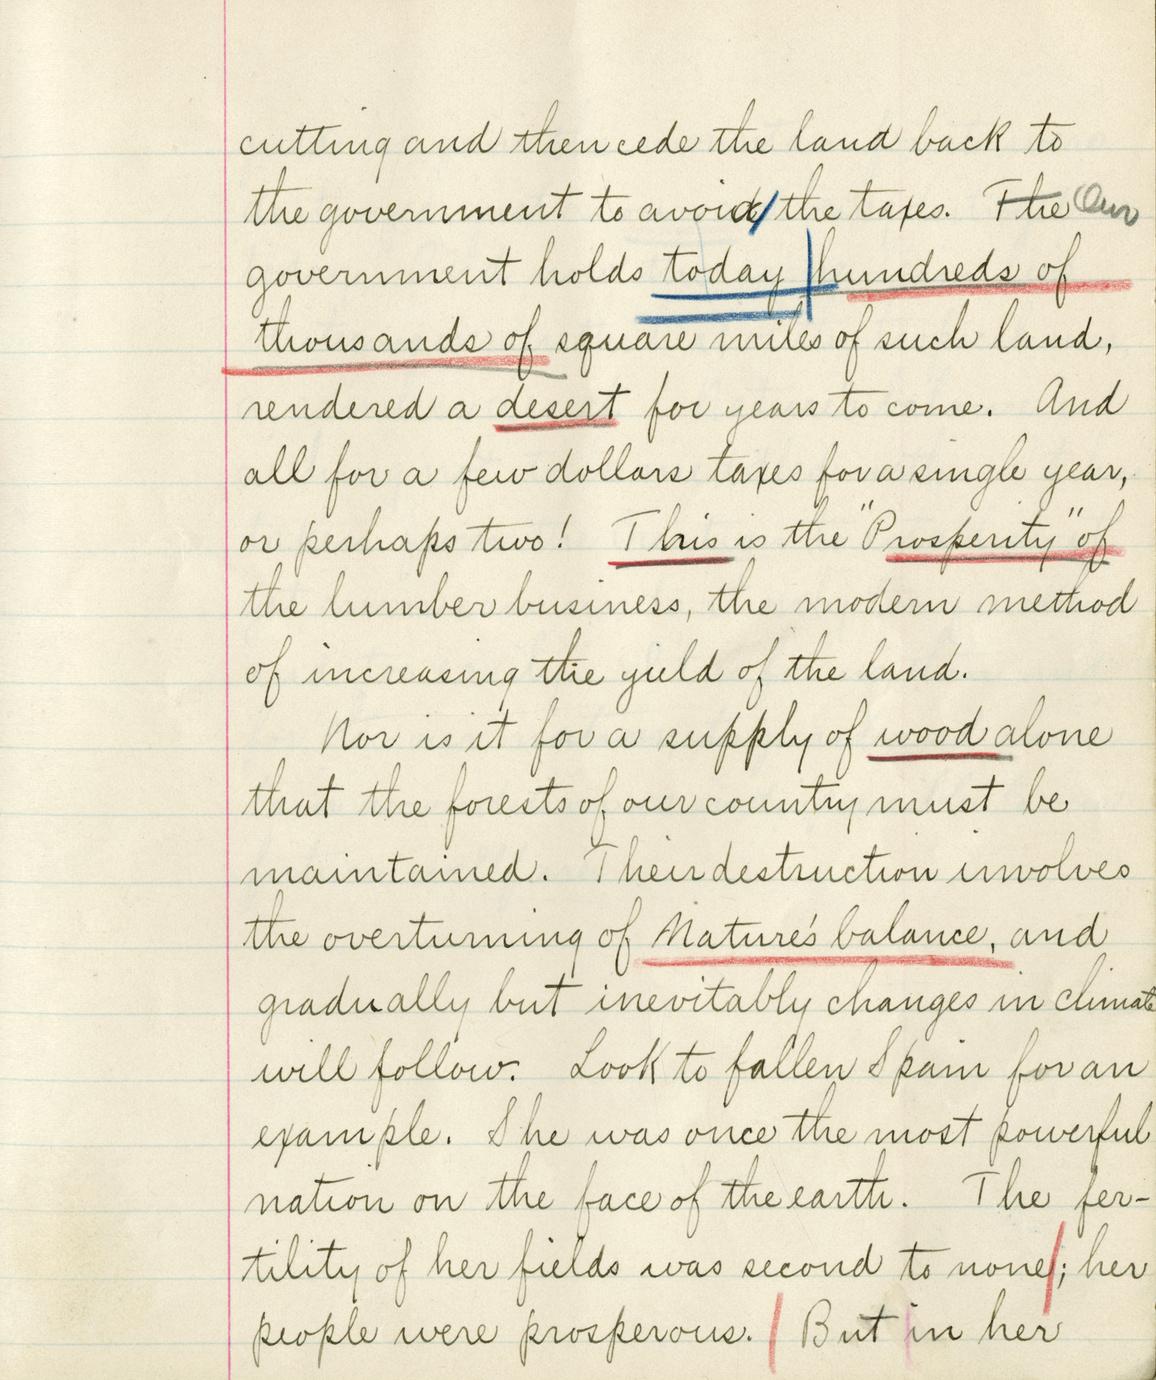 cutting and then cede the land back to
the government to avoid the taxes. The Our
government holds today hundreds of
thousands of square miles of such land,
rendered a desert for years to come. And
all for a few dollars taxes for a single year,
or perhaps two! This is the "Prosperity" of
the lumber business, the modern method
of increasing the yield of the land.
Nor is it for a supply of wood alone
that the forests of our country must be
maintained. Their destruction involves
the overturning of Nature's balance, and
gradually but inevitably changes in climate
will follow. Look to fallen Spain for an
example. She was once the most powerful
nation on the face of the earth. The fer-
tility of her fields was second to none; her
people were prosperous. But in her